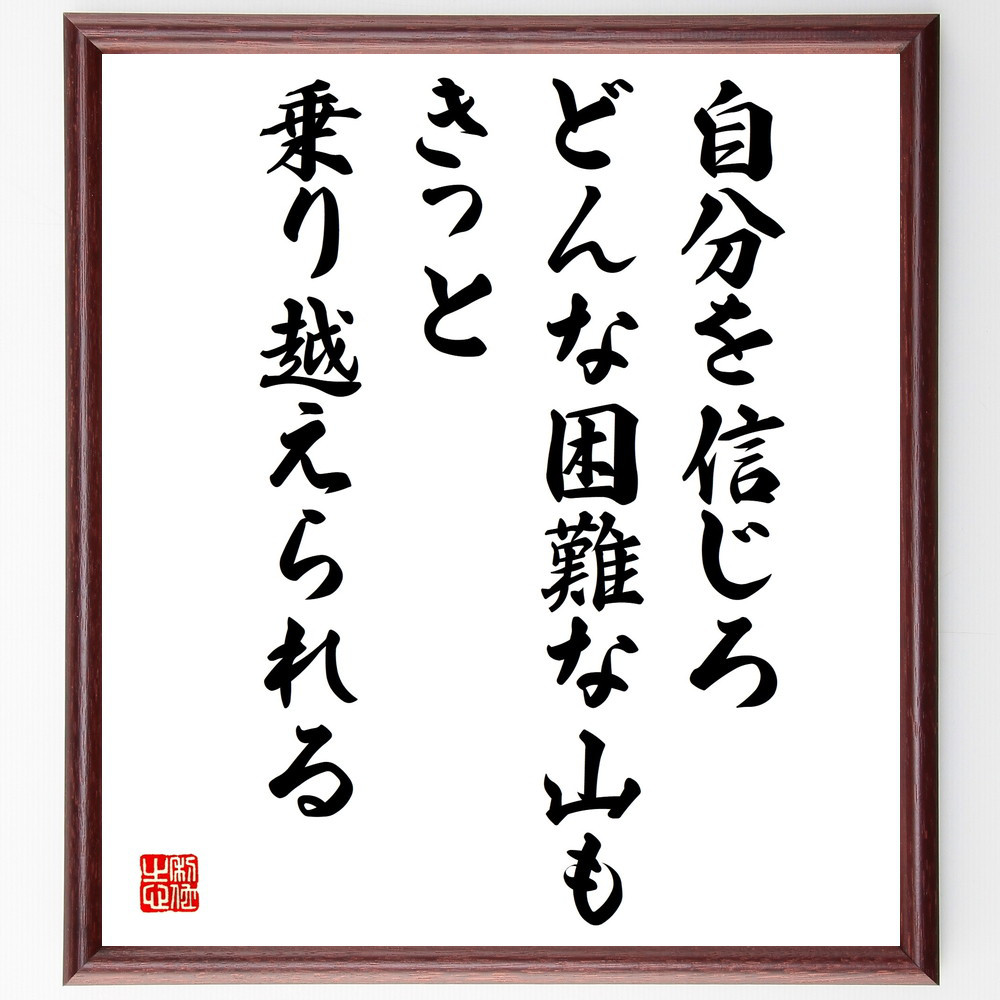 自分を信じろ
どんな困難な山も
きっと
乗り越えられる